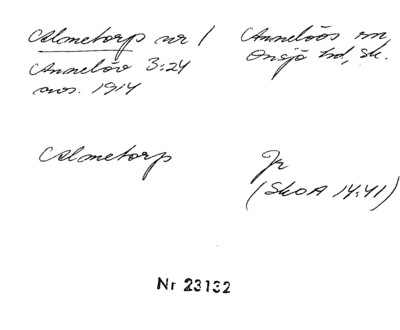 Almetorp nr 1
Annelöv 3:24
avs. 1914
Annelövs sn,
Onsjö hd, Sk.
Almetorp
Jr
(SkOA 14:41)
Nr 23132